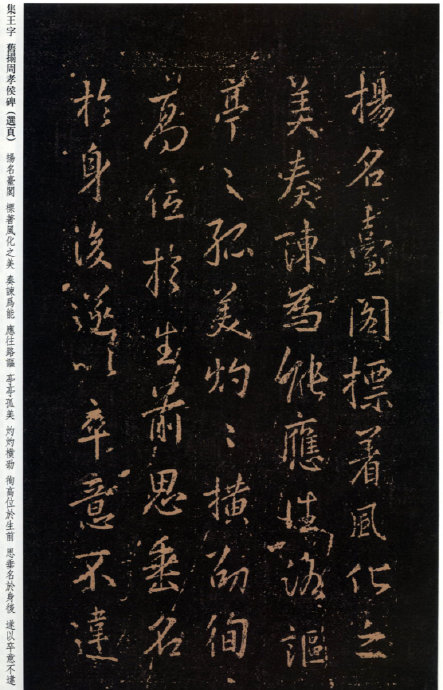 揚名臺閣摽着風化之
美奏陳為能應往路謳
亭〻孤美灼〻橫劭徇〻
高位於生前思垂名
於身後遂以卒意不達
集王字 舊搨周孝侯碑（選頁） 揚名臺閣 標著風化之美 奏諫爲能 應往路謳 亭亭孤美 灼灼橫劭 徇高位於生前 思垂名於身後 遂以卒意不達